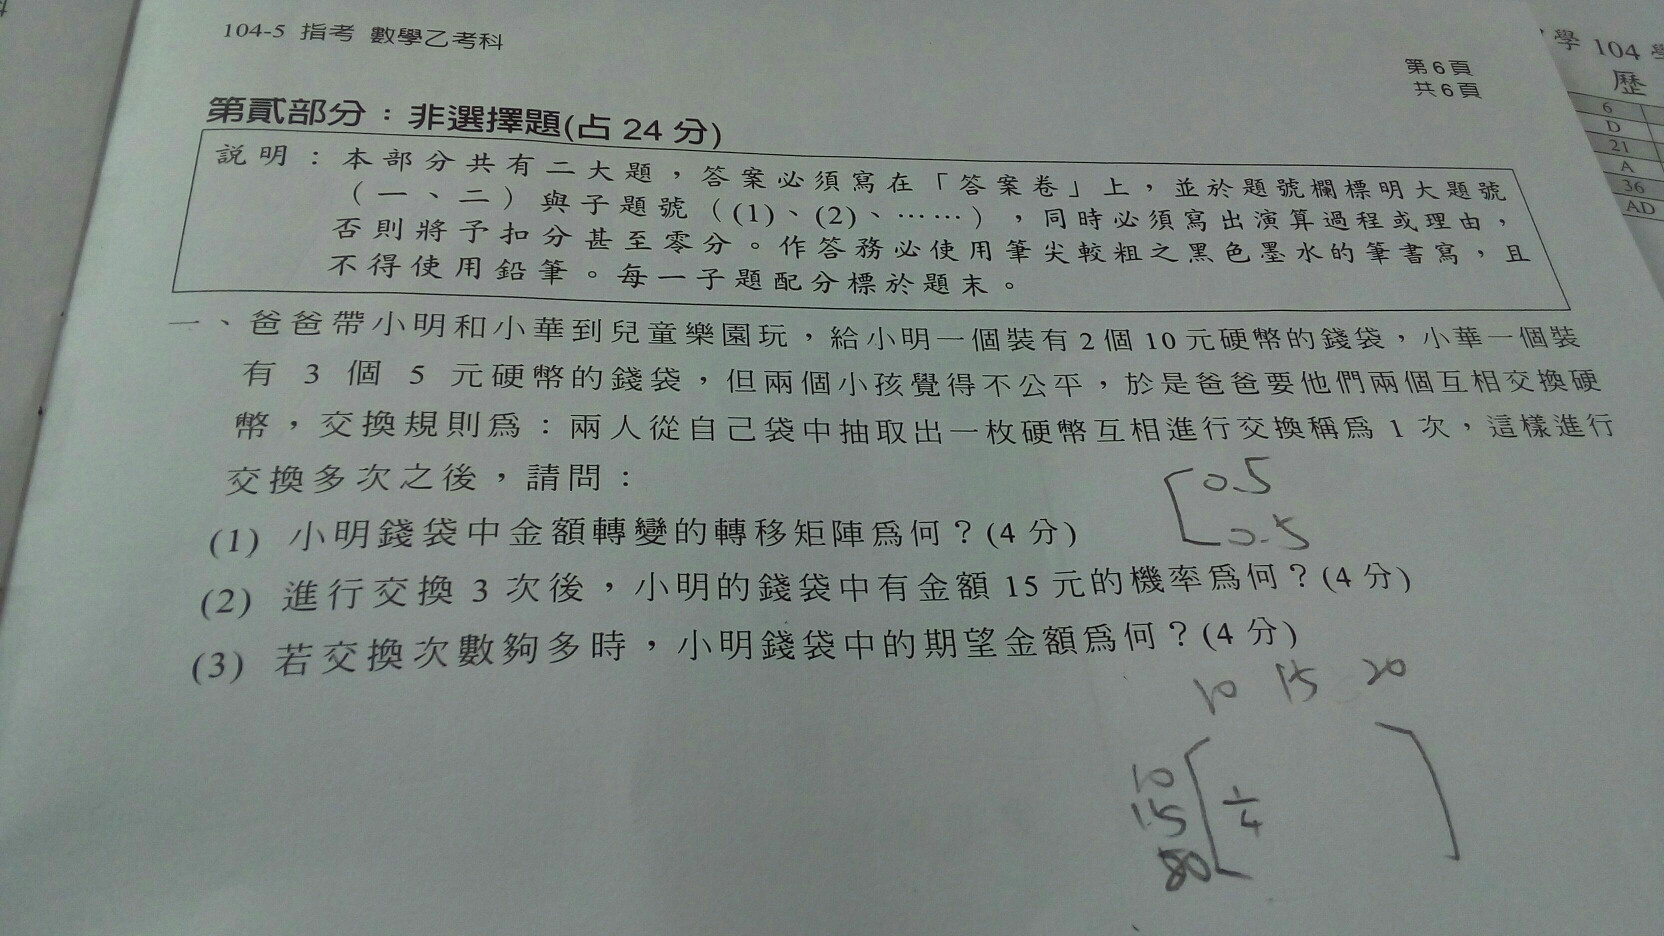 104-5 指考 數學乙考科
第6頁
共6頁
學 104 學
歷
6
D
21
A
36
AD
第貳部分：非選擇題(占24分)
說明：本部分共有二大題，答案必須寫在「答案卷」上，並於題號欄標明大題號
（一、二）與子題號（(1)、(2)、……），同時必須寫出演算過程或理由，
否則將予扣分甚至零分。作答務必使用筆尖較粗之黑色墨水的筆書寫，且
不得使用鉛筆。每一子題配分標於題末。
一、爸爸帶小明和小華到兒童樂園玩，給小明一個裝有2個10元硬幣的錢袋，小華一個裝
有 3 個 5 元硬幣的錢袋，但兩個小孩覺得不公平，於是爸爸要他們兩個互相交換硬
幣，交換規則為：兩人從自己袋中抽取出一枚硬幣互相進行交換稱為 1 次，這樣進行
交換多次之後，請問：
(1) 小明錢袋中金額轉變的轉移矩陣為何？(4分)
(2) 進行交換 3 次後，小明的錢袋中有金額 15 元的機率為何？(4分)
(3) 若交換次數夠多時，小明錢袋中的期望金額為何？(4分)
0.5
0.5
10 15 20
10
15
1/4